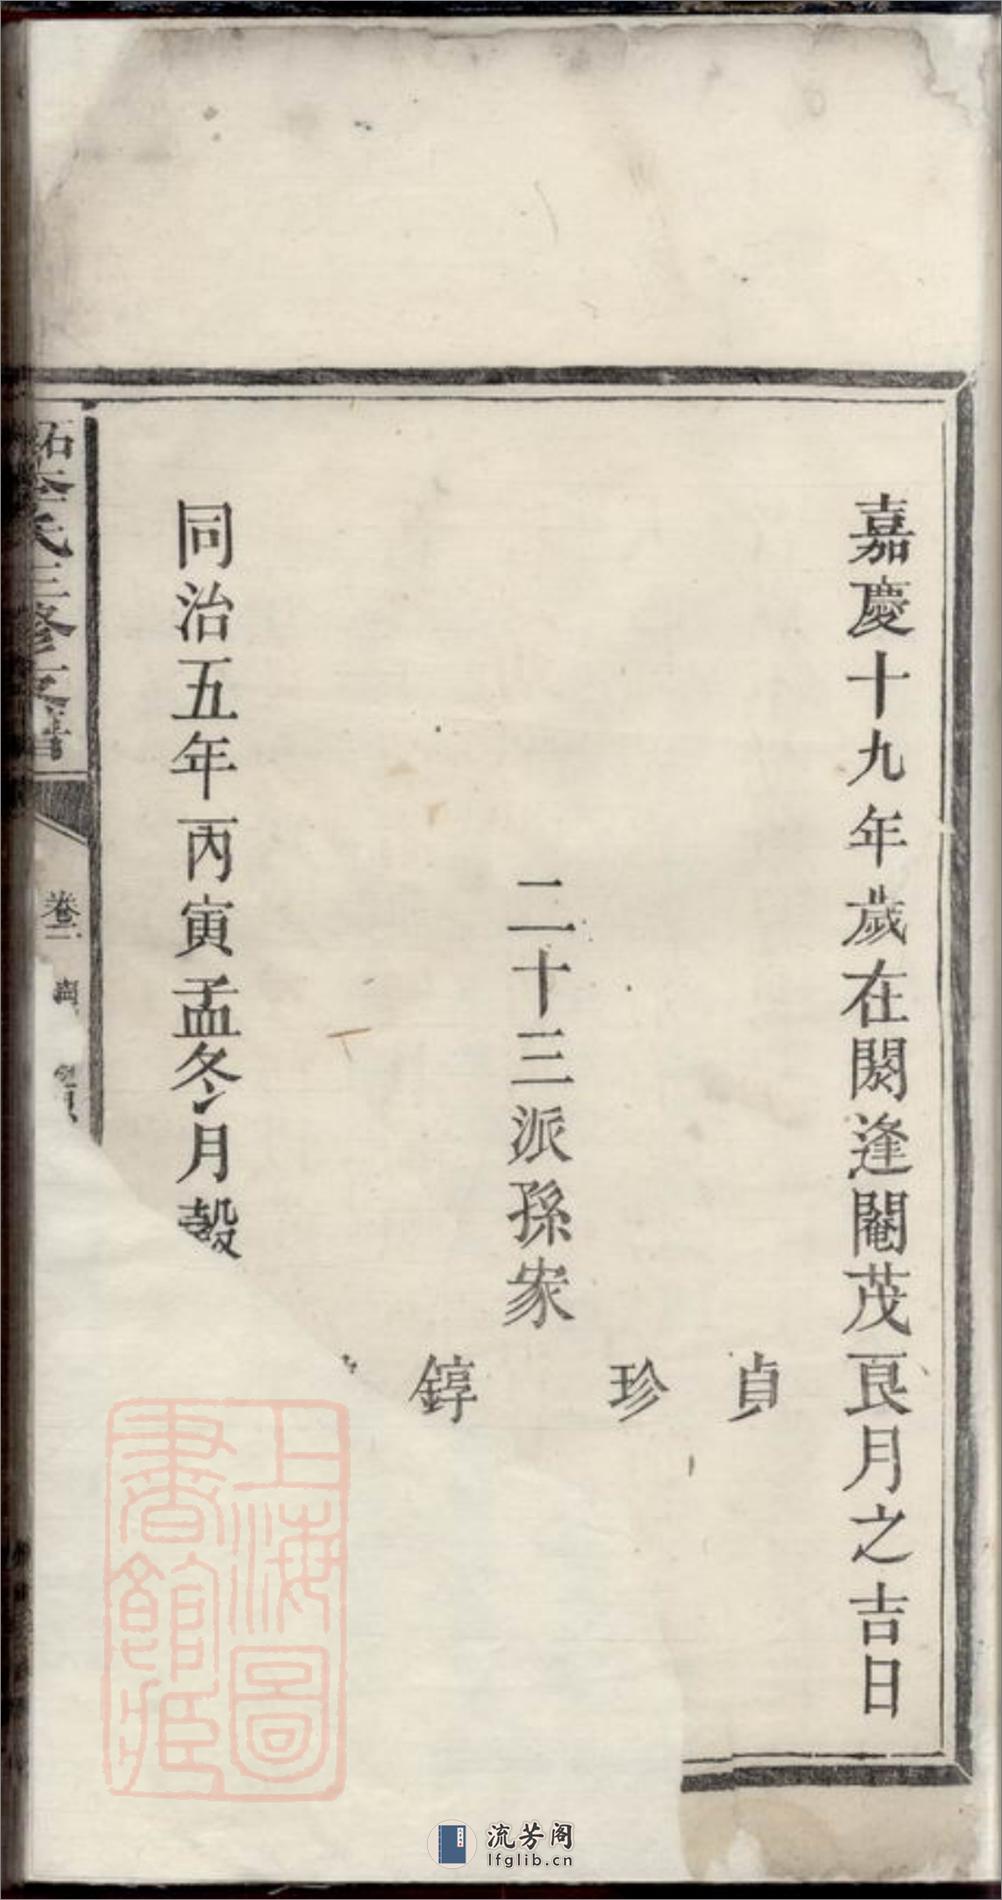 嘉慶十九年歲在閼逢閹茂良月之吉日
貞
珍
二十三派孫家
錞
同治五年丙寅孟冬月穀
氏三修支譜
卷三
上海圖
書館藏
流芳阁
lfglib.cn